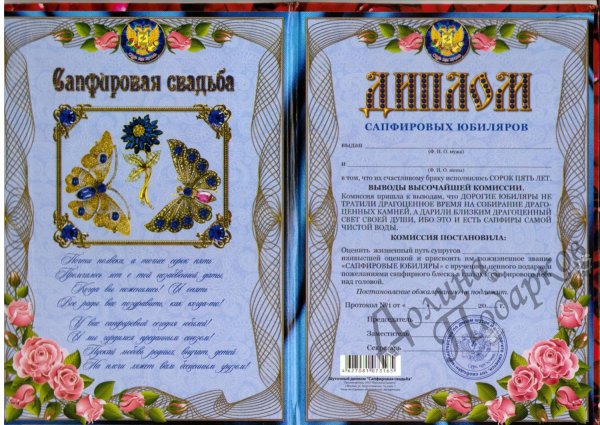 Сапфировая свадьба
Почти полвека, а точнее сорок пять
Промчалось лет с той незабвенной даты,
Когда вы поженились! И опять
Все рады вас поздравить, как когда-то!
У вас сапфировый сегодня юбилей!
И мы гордимся преданным
Пускай любовь родных, внучат, детей
На плечи ляжет вам бесценным грузом!
ДИПЛОМ
САПФИРОВЫХ ЮБИЛЯРОВ
выдан
(Ф. И. О. мужа)
и
(Ф. И. О. жены)
в том, что их счастливому браку исполнилось СОРОК ПЯТЬ ЛЕТ.
ВЫВОДЫ ВЫСОЧАЙШЕЙ КОМИССИИ.
Комиссия пришла к выводам, что ДОРОГИЕ ЮБИЛЯРЫ НЕ
ТРАТИЛИ ДРАГОЦЕННОЕ ВРЕМЯ НА СОБИРАНИЕ ДРАГО-
ЦЕННЫХ КАМНЕЙ, А ДАРИЛИ БЛИЗКИМ ДРАГОЦЕННЫЙ
СВЕТ СВОЕЙ ДУШИ, ИБО ЭТО И ЕСТЬ САПФИРЫ САМОЙ
ЧИСТОЙ ВОДЫ.
КОМИССИЯ ПОСТАНОВИЛА:
Оценить жизненный путь супругов
наивысшей оценкой и присвоить им пожизненное звание
«САПФИРОВЫЕ ЮБИЛЯРЫ» с вручением ценного подарка и
пожеланиями сапфирового блеска в глазах и сапфирового неба
над головой.
Постановление обжалованию не подлежит.
Протокол №1 от « 20
Председатель
Заместитель
Секретарь
Подарков
4627081073165
Двухсложный диплом "Сапфировая свадьба"